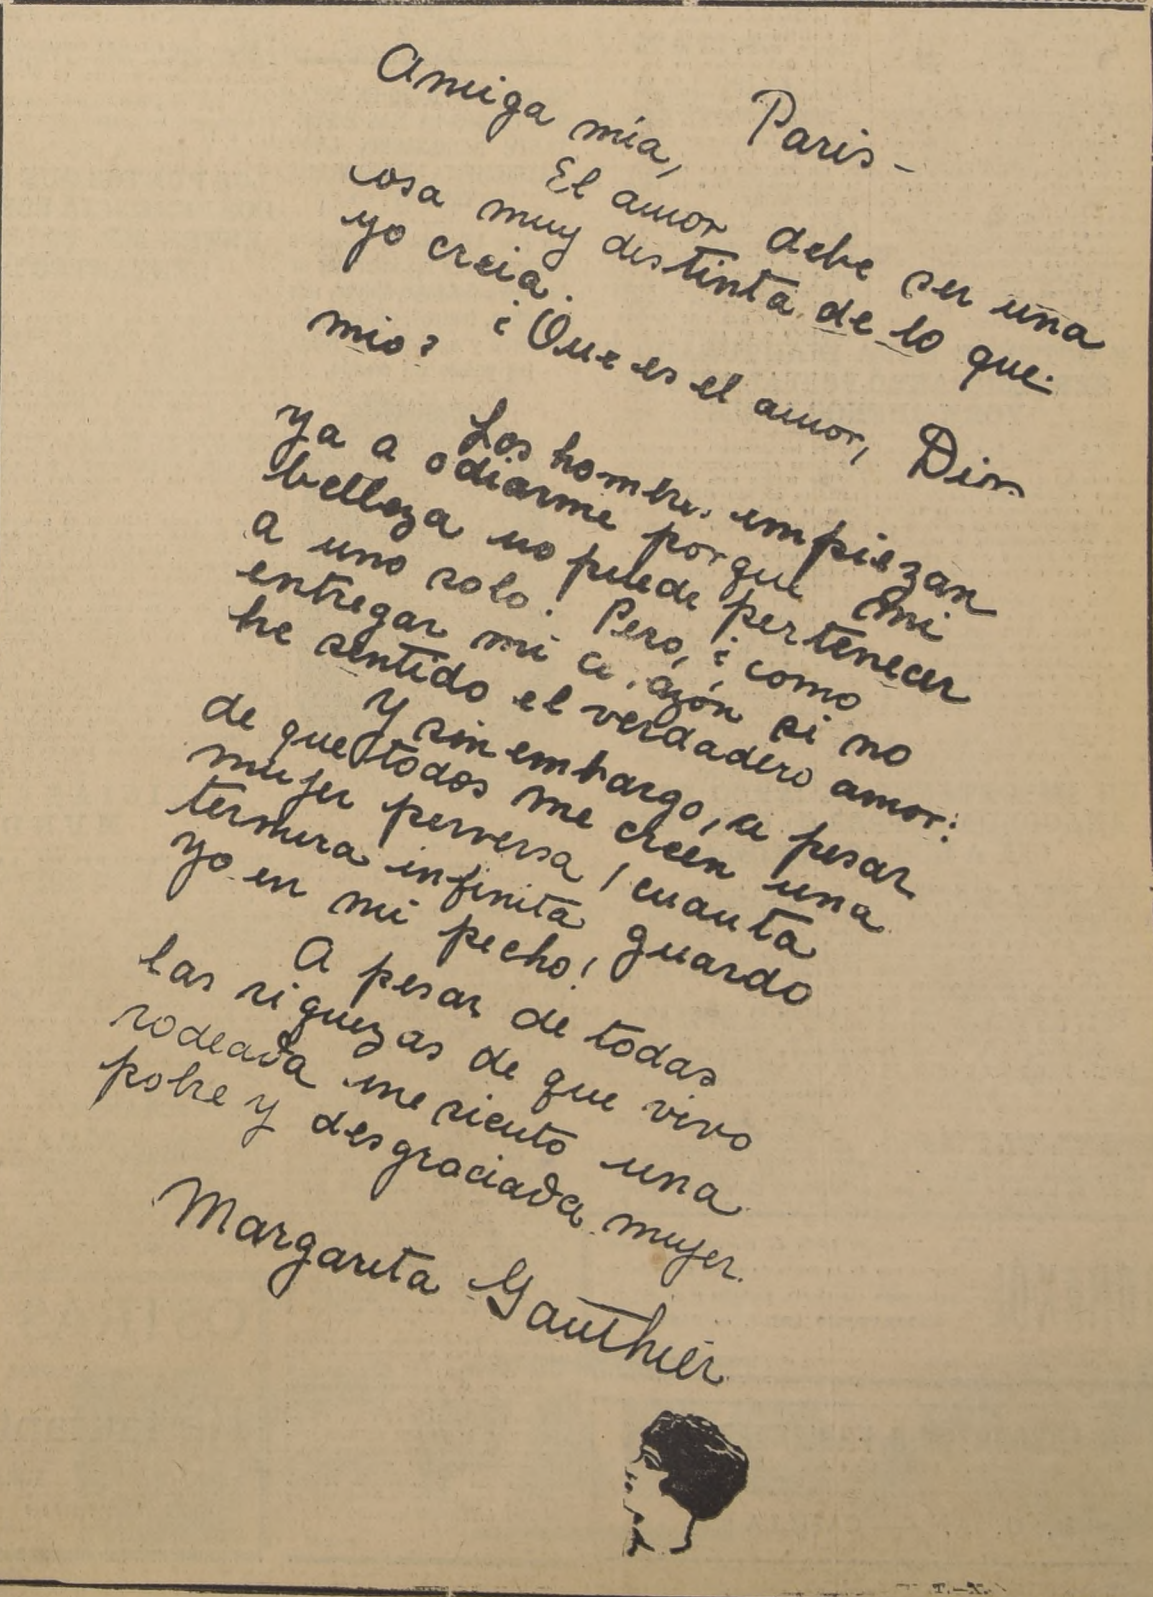 Paris-
Amiga mía,
El amor debe ser una
cosa muy distinta de lo que
yo creia.
¿Que es el amor, Dios
mio?
Los hombres empiezan
ya a odiarme porque mi
belleza no puede pertenecer
a uno solo! Pero, ¿como
entregar mi si no
he sentido el verdadero amor?
Y sin embargo, a pesar
de que todos me creen una
mujer perversa ¡cuanta
ternura infinita guardo
yo en mi pecho!
A pesar de todas
las riquezas de que vivo
rodeada me siento una
pobre y desgraciada mujer.
Margarita Gauthier